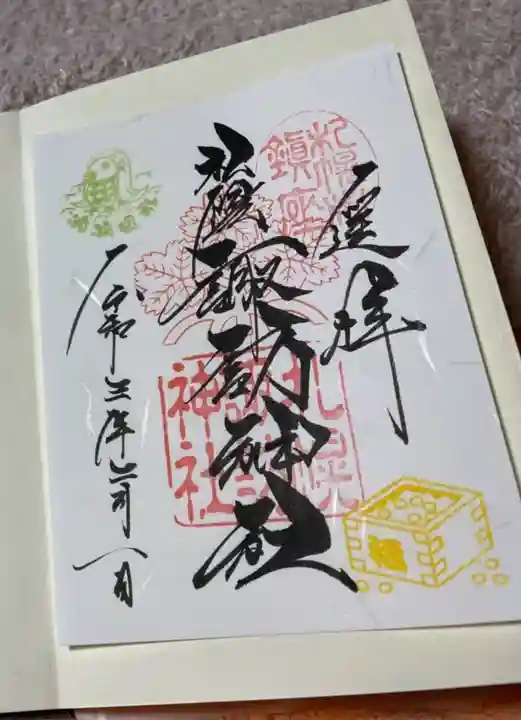 札幌
鎮座
遥拝
札幌諏訪神社
札幌
諏訪
神社
令和三年
福